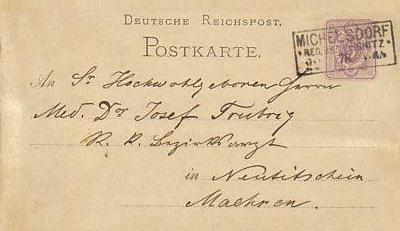 DEUTSCHE REICHSPOST.
POSTKARTE.
MICHELSDORF
REG. LIEGNITZ
78
An Sr Hochwohlgeboren Herrn
Med. Dr Josef Trubrig
K. K. Bezirksarzt
in Neutitschein
Maehren.